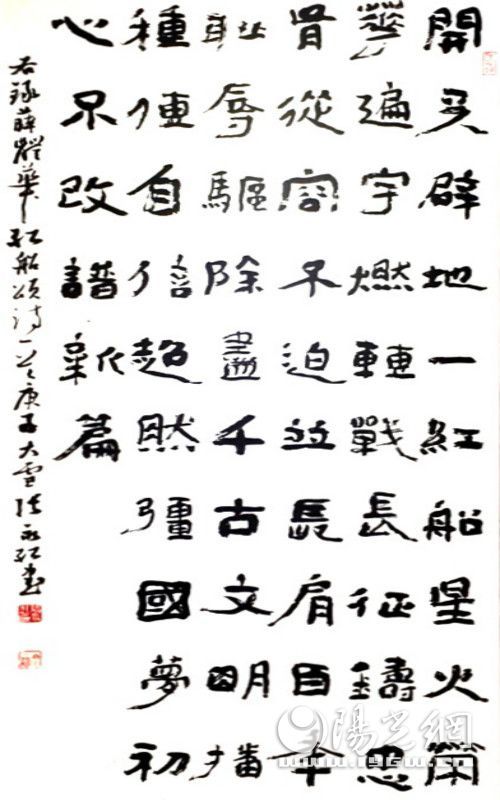 開天辟地一紅船星火
夢遍宇燃轉戰長征鑄忠
骨從容不迫並長肩百年
耻辱驅除盡千古文明播
種傳自信超然彊國夢初
心不改譜新篇
右録薛耀華紅船頌詩一首庚子大雪張永紅書
陽光網